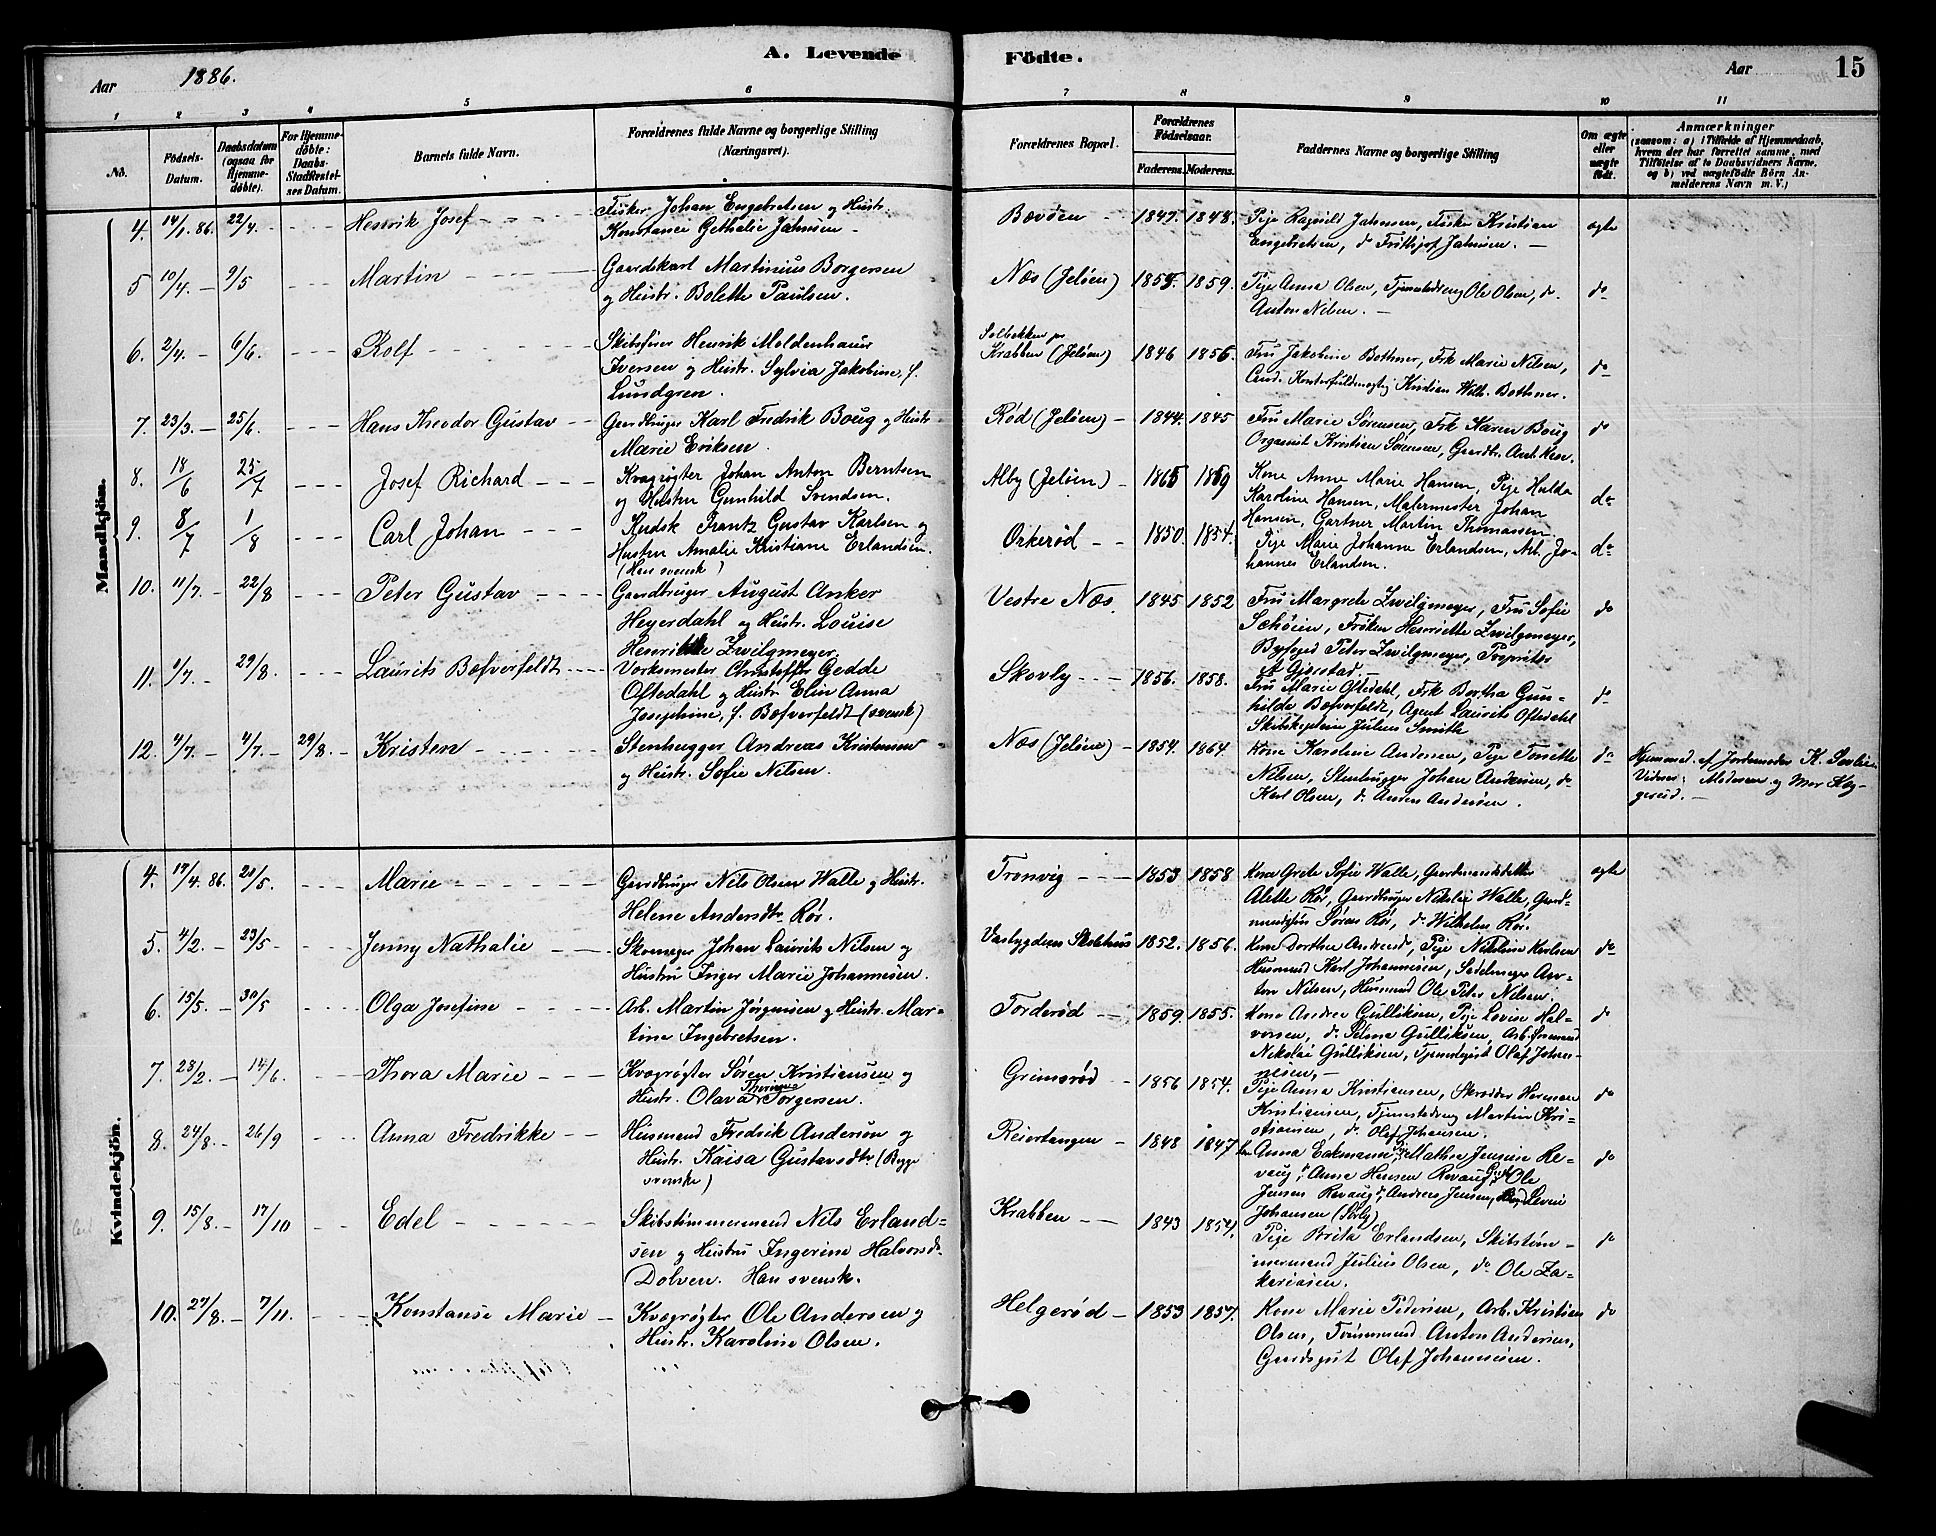 A. Levende Födte.
Aar 1886.
Aar 15
1 2 3 4 5 6 7 8 9 10 11
No.
Födsels-Datum.
Daabsdatum (ogsaa for Hjemme-döbte).
For Hjemme-döbte: Daabs-Stadfæstel-ses Datum.
Barnets fulde Navn.
Forældrenes fulde Navne og borgerlige Stilling (Næringsvei).
Forældrenes Bopæl.
Forældrenes Födselsaar.
Faderens. Moderens.
Faddernes Navne og borgerlige Stilling
Om ægte eller uægte födt.
Anmærkninger
(saasom: a) i Tilfælde af Hjemmedaab, hvem der har forrettet samme, med Tilföielse af to Daabsvidners Navne, og b) ved uægtefödte Börn An-melderens Navn m. V.)
Mandkjön.
4. 14/1. 86. 22/4. Henrik Josef Fisker Johan Engebretsen og Hustr.
Konstance Gethalie Jahnsen Bævden 1847. 1848. Pige Ragnild Jahnsen, Fisker Kristian
Engebretsen, do Frithjof Jahnsen. ægte
5 10/4. 9/5 Martin Gaardskarl Martinius Borgersen
og Hustr. Bolette Paulsen. Næs (Jeløen) 1854. 1859. Pige Anna Olsen, Tjenestedreng Ole Olsen, do.
Anton Nilsen. do
6. 2/4. 6/6. Rolf Skibsfører Henrik Moldenhauer
Iversen og Hustr. Sylvia Jakobine, f.
Lundgren. Solbakken pr
Krabben (Jeløen) 1846 1856. Fru Jakobine Bothner, Frk Marie Nilsen,
Cand. Kontorfuldmægtig Kristian Wilh. Bothner. do
7. 23/3. 25/6. Hans Theodor Gustav Gaardbruger Karl Fredrik Boug og Hustr
Marie Eriksen Rød (Jeløen) 1844. 1845 Fru Marie Sørensen, Frk Karen Boug
Organist Kristian Sørensen, Gaardb. Ant. do
8. 18/6 25/7 Josef Richard Kvægrøgter Johan Anton Berntsen
og Hustru Gunhild Svendsen. Alby (Jeløen) 1865 1869 Kone Anne Marie Hansen, Pige Hulda
Karoline Hansen, Malermester Johan
Hansen, Gartner Martin Thomassen. do
9. 8/7 1/8 Carl Johan Kudsk Frantz Gustav Karlsen og
Hustru Amalie Kristiane Erlandsen.
(Han svensk) Orkerød 1850. 1854. Pige Marie Johanne Erlandsen, Arb. Jo-
hannes Erlandsen. do
10. 11/7. 22/8 Peter Gustav Gaardbruger August Anker
Heyerdahl og Hustr. Louise
Henriette Zwilgmeyer. Vestre Næs. 1845 1852 Fru Margrete Zwilgmeyer, Fru Sofie
Schøien, Frøken Henriette Zwilgmeyer,
Byfoged Peter Zwilgmeyer, Proprietær
A Gjerstad. do
11. 1/7. 29/8. Laurits Bæfverfeldt Værksmester Christoffer Gedde
Oftedahl og Hustr Elin Anna
Josephine, f. Bæfverfeldt (svensk) Skovly 1856. 1858. Fru Marie Oftedahl, Frk Bertha Gun-
hilde Bæfverfeldt, Agent Laurits Oftedahl
Skibskaptein Julius Smith do
12. 4/7. 4/7. 29/8. Kristen Stenhugger Andreas Kristensen
og Hustr. Sofie Nilsen. Næs (Jeløen) 1854. 1864. Kone Karoline Andersen, Pige
Nilsen, Stenhugger Johan Andersen, do
Karl Olsen, do. Anders Andersen. do Hjemmed. af Jordemoder K.
Vidner: Moderen og Mor
Kvindekjön.
4. 17/4. 86. 20/5. Marie Gaardbruger Nils Olsen Walle og Hustr.
Helene Andersdtr Rør. Tronvig 1853 1858 Kone Grete Sofie Walle, Gaardmandsdatter
Alette Rør, Gaardbruger Nikolai Walle, Gaard-
mandssøn Søren Rør, do Wilhelm Rør. ægte
5. 4/2. 23/5. Jenny Nathalie Skomager Johan Laurits Nilsen og
Hustru Inger Marie Johannesen. Vasbygdens Skolehus 1852. 1856. Kone Dorthea Andreasd., Pige Nikoline Karlsen
Husmand Karl Johannesen, Sadelmager An-
ton Nilsen, Husmand Ole Peter Nilsen. do
6. 15/5. 30/5 Olga Josefine Arb. Martin Jørgensen og Hustr. Mar-
tine Ingebretsen. Torderød 1859. 1855. Kone Andrea Gulliksen, Pige Lovise Hal-
vorsen, do Selma Gulliksen, Arb.formand
Nikolai Gulliksen, Tjenestegut Olaf Johan-
nesen. do
7. 28/2. 14/6. Thora Marie Kvægrøgter Søren Kristiansen og
Hustr. Olava Thorine Torgersen. Grimsrød 1856 1854. Pige Anna Kristiansen, Skrædder Herman
Kristiansen, Tjenestedreng Martin Kri-
stiansen, do. Olaf Johansen. do
8. 24/8. 26/9 Anna Fredrikke Husmand Fredrik Anderson og
Hustr. Kaisa Gustavsdtr (Begge
svenske) Reiertangen 1848 1847 Kone Anna Eckmann, Pige Mathea Jensine Re-
vaug, do Anna Hansen Revaug, Gaardbr. Ole
Jensen Revaug, do Andreas Jensen, Levin
Johansen do
9. 15/8. 17/10 Edel Skibstømmermand Nils Erland-
sen og Hustru Ingerine Halvorsdr.
Dolven. Han svensk. Krabben 1843 1854. Pige Brita Erlandsen, Skibstøm-
mermand Julius Olsen, do Ole Za-
kariasen. do
10. 27/8. 7/11. Konstanse Marie Kvægrøgter Ole Andersen og
Hustr. Karoline Olsen. Helgerød 1853 1857. Kone Marie Pedersen, Arb. Kristian
Olsen, Tømmermand Anton Andersen,
Gaardsgut Olaf Johannesen. do